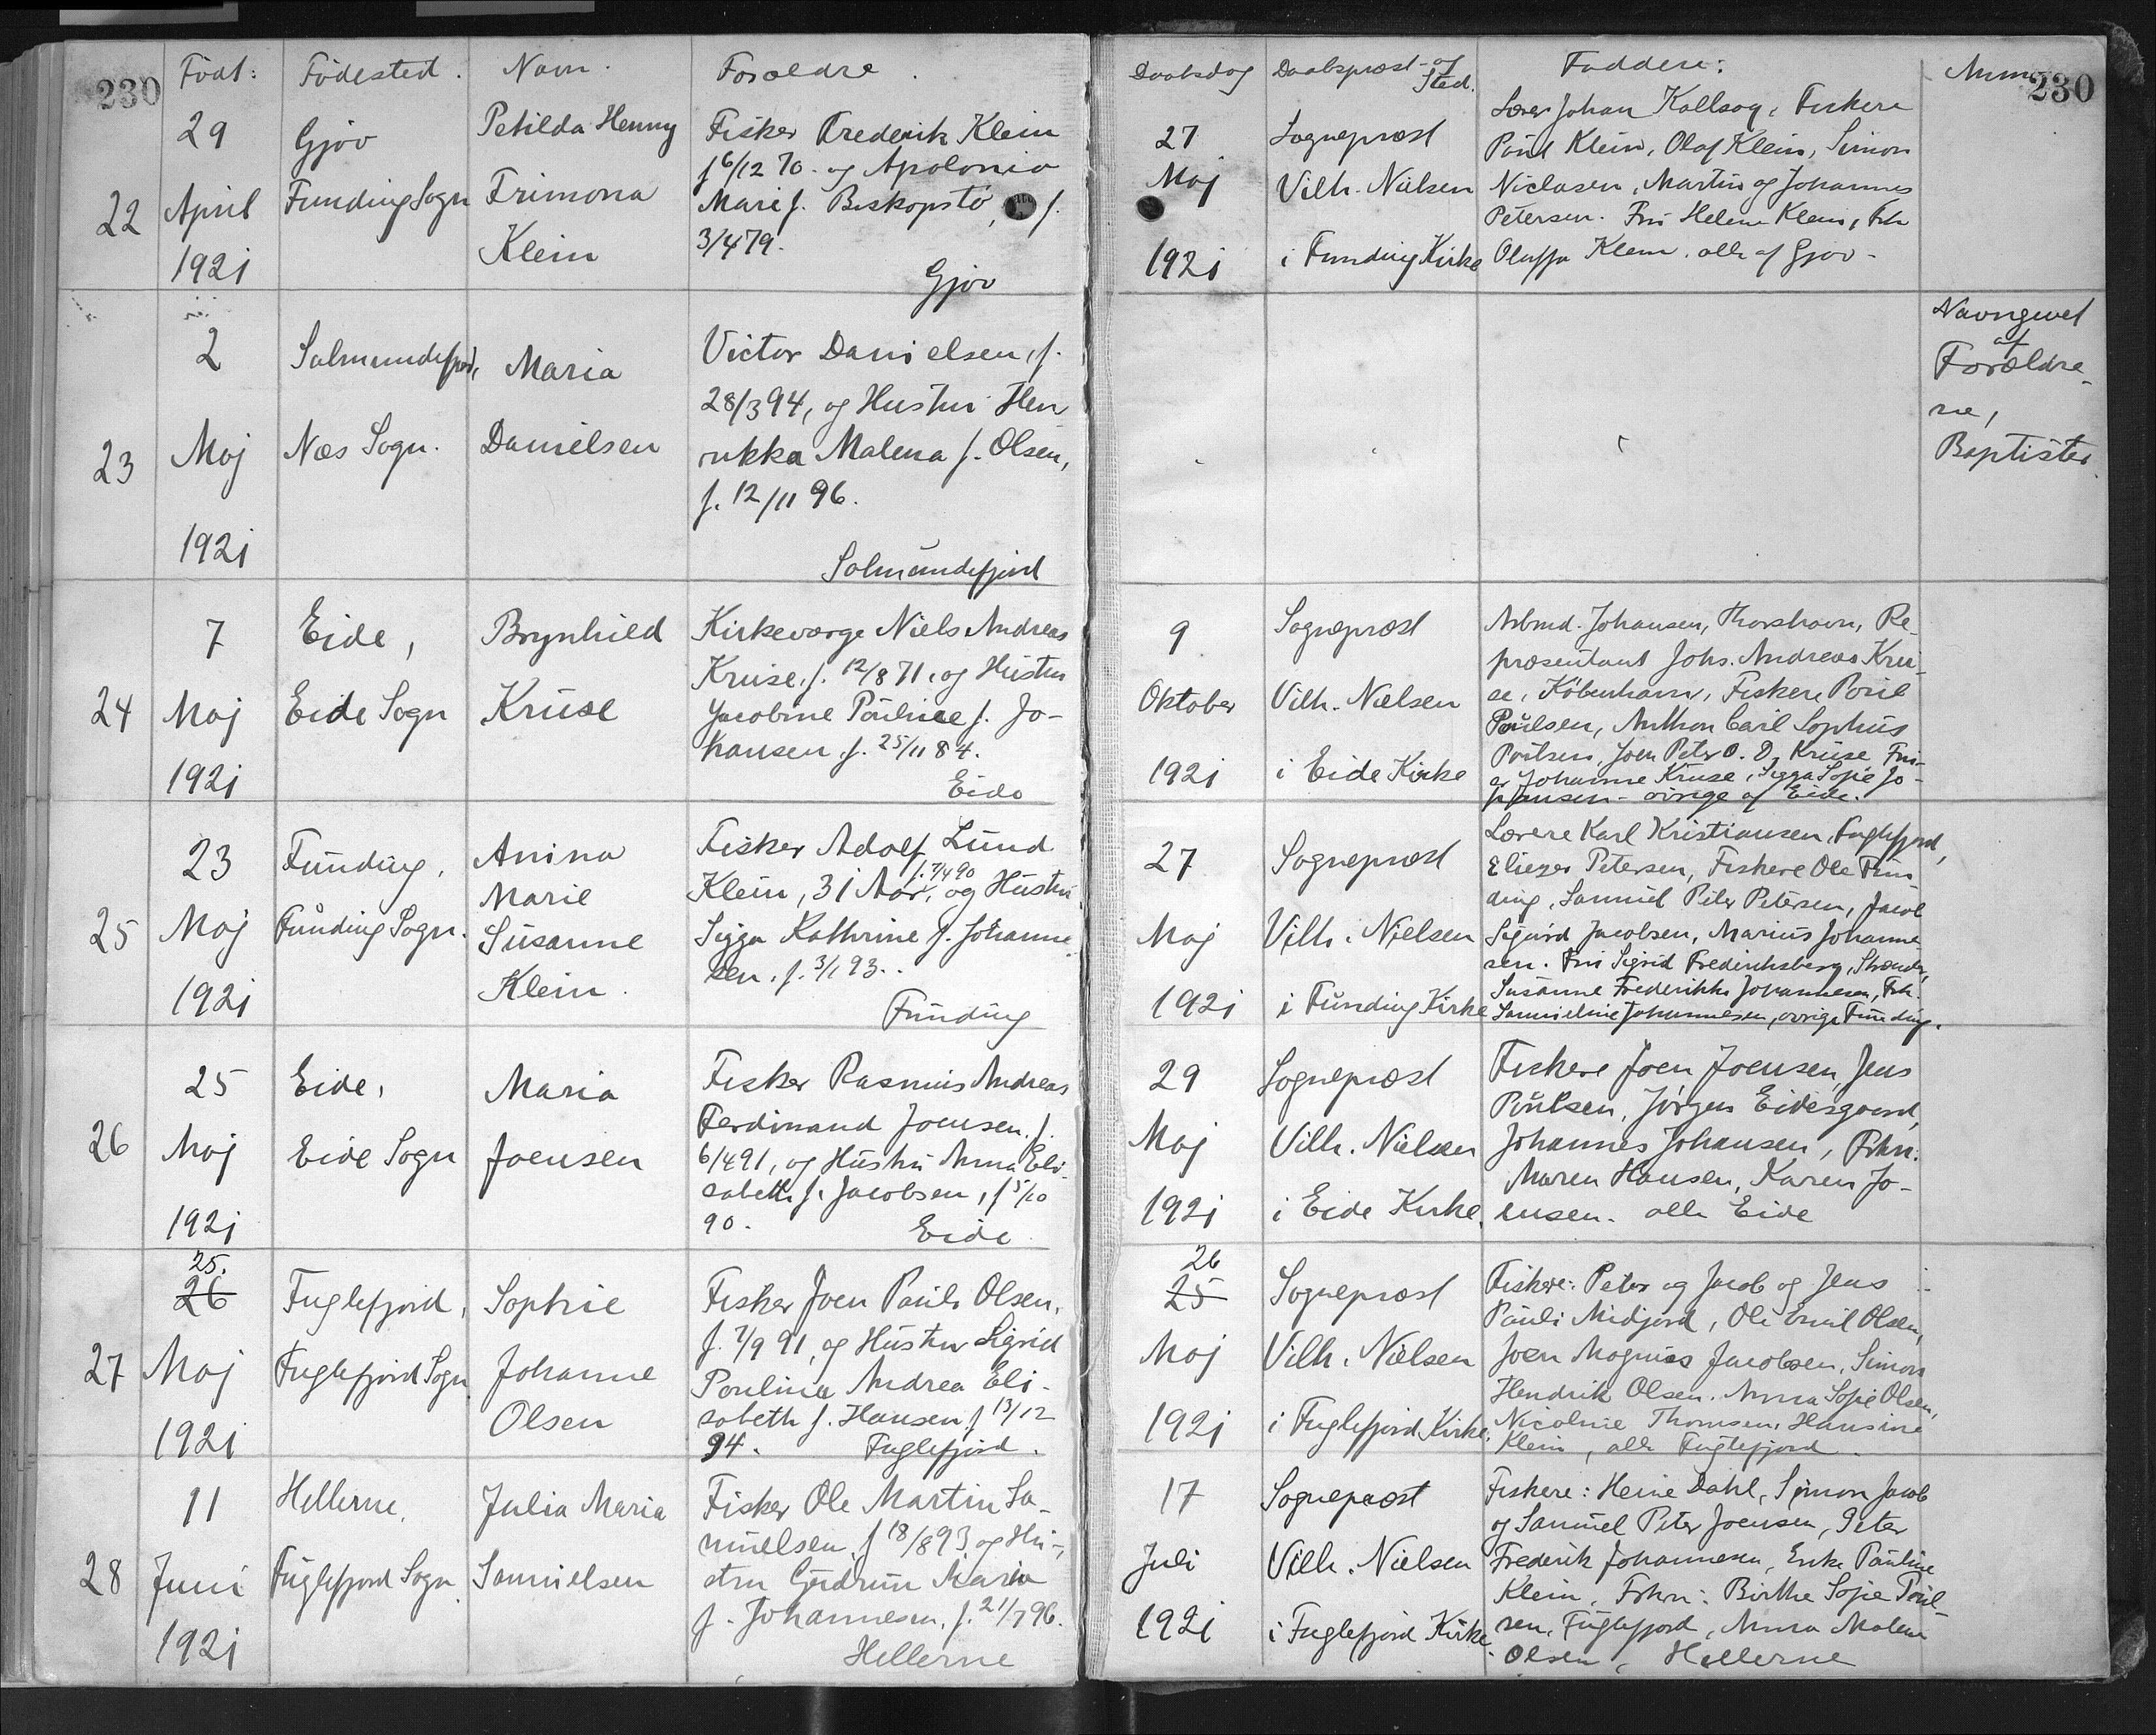 230
Født: Fødested. Navn. Forældre.
22
29
April
1921
Gjov
Funding Sogn
Petilda Henny
Frimona
Klein
Fisker Frederik Klein
f 6/12 70. og Apolonia
Marie f. Biskopstø, f.
3/4 79.
Gjov
23
2
Maj
1921
Salmundefjord,
Næs Sogn.
Maria
Danielsen
Victor Danielsen, f.
28/3 94, og Hustru Hen
rikka Malena f. Olsen,
f. 12/11 96.
Salmundefjord
24
7
Maj
1921
Eide,
Eide Sogn
Brynhild
Kruse
Kirkeværge Niels Andreas
Kruse, f. 12/8 71, og Hustru
Jacobine Pouline f. Jo-
hansen, f. 25/11 84.
Eide
25
23
Maj
1921
Funding,
Funding Sogn.
Anina
Marie
Susanne
Klein.
Fisker Adolf Lund
f. 7/4 90
Klein, 31 Aar, og Hustru
Sigga Kathrine f. Johanne
sen, f. 3/1 93.
Funding
26
25
Maj
1921
Eide,
Eide Sogn
Maria
Joensen
Fisker Rasmus Andreas
Ferdinand Joensen, f.
6/4 91, og Hustru Anna Eli-
sabeth f. Jacobsen, f 5/10
90.
Eide
27
25.
26
Maj
1921
Fuglefjord,
Fuglefjord Sogn
Sophie
Johanne
Olsen
Fisker Joen Pauli Olsen,
f. 7/9 91, og Hustru Sigrid
Poulina Andrea Eli-
sabeth f. Hansen f 13/12
94. Fuglefjord.
28
11
Juni
1921
Hellerne,
Fuglefjord Sogn
Julia Maria
Samuelsen
Fisker Ole Martin Sa-
muelsen, f 18/8 93 og Hu-
stru Gudrun Maria
f. Johannesen, f. 21/7 96.
Hellerne
Daabsdag Daabspræst- og Sted. Faddere: Anm
230
27
Maj
1921
Sognepræst
Vilh. Nielsen
i Funding Kirke
Lærer Johan Kallsoy, Fiskere
Poul Klein, Olaf Klein, Simon
Niclasen, Martin og Johannes
Petersen. Fru Helene Klein, Frk
Oluffa Klein. alle af Gjov-
Navngivet
af
Forældre-
ne,
Baptister.
9
Oktober
1921
Sognepræst
Vilh. Nielsen
i Eide Kirke
Arbmd. Johansen, Thorshavn, Re-
præsentant Johs. Andreas Kru-
se, København, Fiskere Poul
Poulsen, Anthon Carl Sophus
Poulsen, Joen Peter O. D. Kruse Fru-
er Johanne Kruse, Sigga Sofie Jo-
hansen- øvrige af Eide.
27
Maj
1921
Sognepræst
Vilh. Nielsen
i Funding Kirke
Lærere Karl Kristiansen, Fuglefjord,
Eliezer Petersen, Fiskere Ole Fun
ding, Samuel Peter Petersen, Jacob
Sigurd Jacobsen, Marius Johanne-
sen. Fru Sigrid Frederichsberg, Strænder,
Susanne Frederikke Johannesen, Frk.
Samueline Johannesen, øvrige Funding.
29
Maj
1921
Sognepræst
Vilh. Nielsen
i Eide Kirke.
Fiskere Joen Joensen, Jens
Poulsen, Jørgen Eidesgaard,
Johannes Johansen, Frkn.
Maren Hansen, Karen Jo-
ensen. alle Eide
26
25
Maj
1921
Sognepræst
Vilh. Nielsen
i Fuglefjord Kirke.
Fiskere: Peter og Jacob og Jens
Pauli Midjord, Ole Emil Olsen,
Joen Magnus Jacobsen, Simon
Hendrik Olsen. Anna Sofie Olsen,
Nicoline Thomsen, Hansine
Klein, alle Fuglefjord.
17
Juli
1921
Sognepræst
Vilh. Nielsen
i Fuglefjord Kirke.
Fiskere: Heine Dahl, Simon Jacob
og Samuel Peter Joensen, Peter
Frederik Johannesen, Enke Pauline
Klein, Frkn: Birthe Sofie Poul-
sen, Fuglefjord, Anna Malene
Olsen, Hellerne